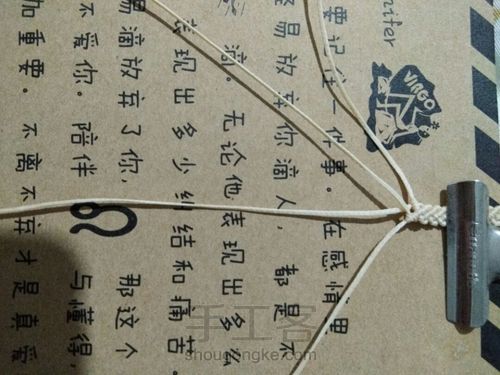 nifer
VIRGO
要记住一件事。在感情里
轻易放弃你滴人,都是不
滴。无论他表现出多么
表现出多少纠结和痛苦。
易滴放弃了你,那这个
不爱你。陪伴与懂得,
加重要。不离不弃才是真爱
手工客
shougongke.com